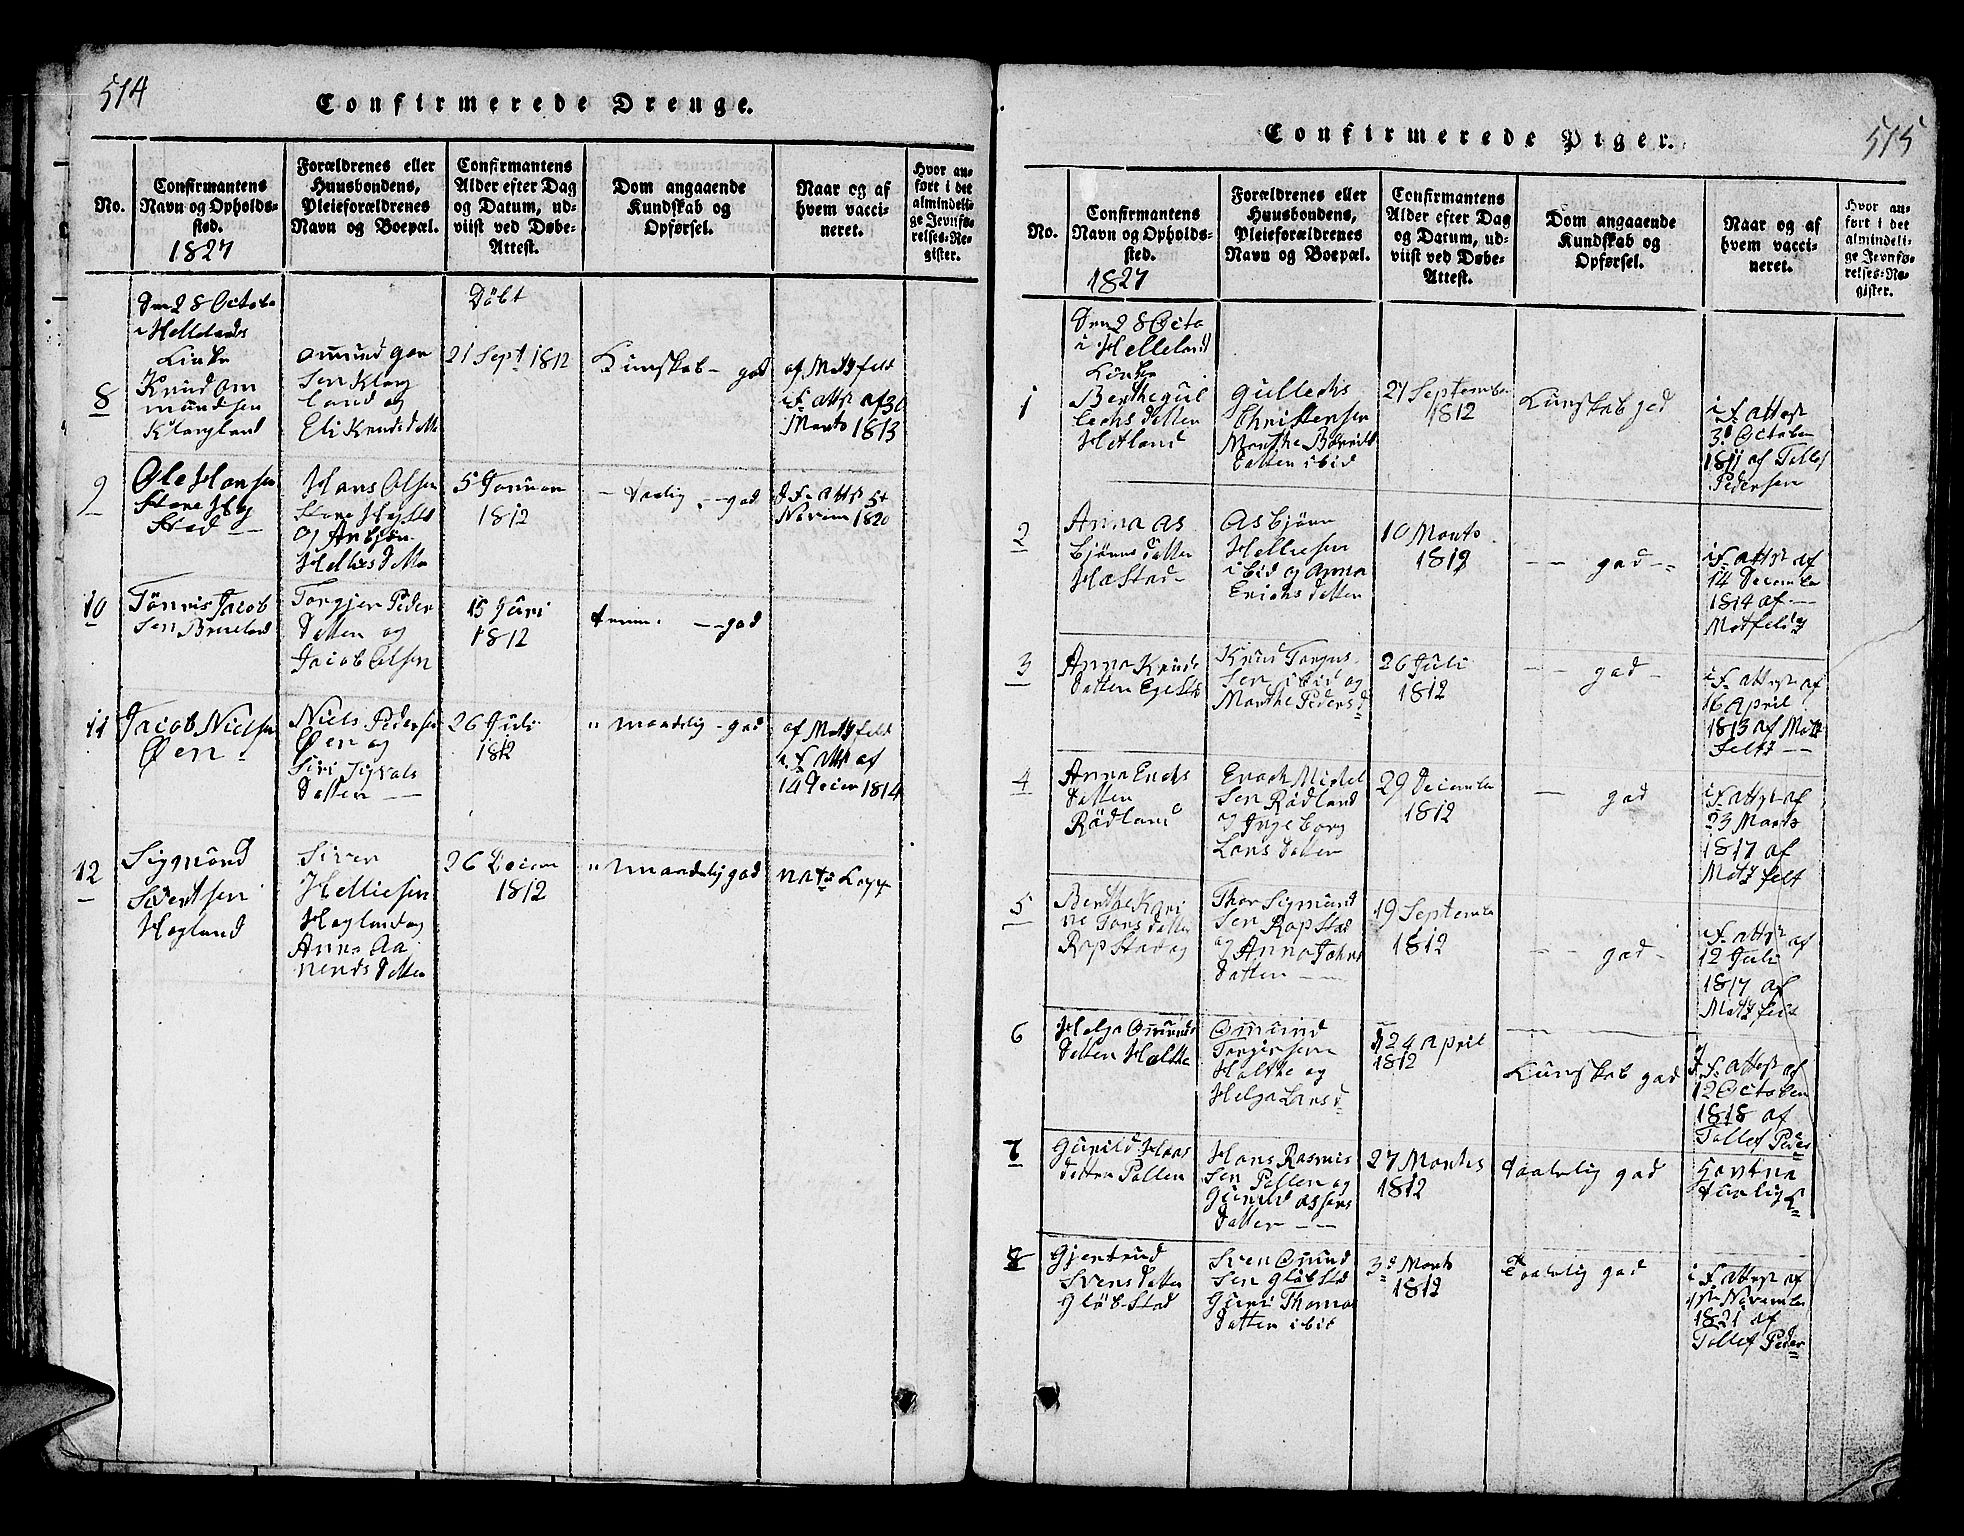 514
Confirmerede Drenge.
No.
Confirmantens
Navn og Opholds-
sted.
1827
Forældrenes eller
Huusbondens,
Pleieforældrenes
Navn og Boepæl.
Confirmantens
Alder efter Dag
og Datum, ud-
viist ved Døbe-
Attest.
Dom angaaende
Kundskab og
Opførsel.
Naar og af
hvem vacci-
neret.
Hvor an-
ført i det
almindeli-
ge Jevnfø-
relses-Re-
gister.
Den 28 Octobe
i Hellelands
Kirke
Døbt
8
Knud Om
mundsen
Klongland
Omund
sen
land og
Eli Knudsdatte
21 Sept 1812
Kunskab - god
af Motzfelt
i F. attst af 30
Marts 1813
9
Ole Hansen
Store Hog
Stad
Hans Olsen
Store Hogstd
og Anbjør
Helliesdatte
5 Januar
1812
- taalig - - god
i F. attst 5t
Novem 1820
10
Tönnis Jacob
sen
Torgier Peder
Datter og
Jacob Olsen
15 Juni
1812
- - god
11
Jacob Nielsen
Øen
Niels Peders
Øen og
Siri Sigvals
Datter
26 Juli
1812
" maadelig - god
af Motzfelt
i F. attst af
14 Decem 1814
12
Sigmund
Siventsen
Hogland
Siven
Helliesen
Hogland og
Anne Aa
nends datter
26 Decem
1812
" maadelig god
nat: Kopp
Confirmerede Piger.
515
No.
Confirmantens
Navn og Opholds-
sted.
1827
Forældrenes eller
Huusbondens,
Pleieforældrenes
Navn og Boepæl.
Confirmantens
Alder efter Dag
og Datum, ud-
viist ved Døbe-
Attest.
Dom angaaende
Kundskab og
Opførsel.
Naar og af
hvem vacci-
neret.
Hvor an-
ført i det
almindeli-
ge Jevnfø-
relses-Re-
gister.
Den 28 Octo
i Helleland
Kirke
1
Berthe Gul
lechs datter
Hetland
Gullechs
Christensen
Marthe Bør
datter ibid
27 September
1812
Kunskab god
i F. attest
3d October
1811 af Tollef
Pedersen
2
Anna As
bjørns datter
Hæstad
Asbjørn
Helliesen
ibid og Anna
Erichs datter
10 Marts
1812
- - god - -
i F. attst af
14 December
1814 af -
Motfeldtz
3
Anna Knuds
datter Egeld
Knud Torgus
sen ibid og
Marthe Peders d
26 Juli
1812
- - god -
i F. attst af
16 April
1813 af Motz
feltz
4
Anna Enochs
datter
Rödland
Enoch Mickel
sen Rödland
og Ingeborg
Lars datter
29 December
1812
- god
i F. attst af
23 Marts
1817 af
Motzfelt
5
Berthe Kari
ne Tors datter
Rapstad og
Thor Sigmund
sen Rapstad
og Anna Johns
datter
19 September
1812
- - god -
i F. attst af
12 Juli
1817 af
Motzfelt
6
Helga Omunds
datter Halthe
Omund
Torgersen
Halthe og
Helga Lars d
24 April
1812
Kunskab god
i F. attest af
12 October
1818 af
Tollef Peders
7
Gunild Hans
datter Pollen
Hans Rasmus
sen Pollen og
Gunild Assers
datter
27 Martis
1812
taalelig god
Havt na
turlig K
8
Gjertrud
Svens datter
Glöbstad
Sven Omund
sen Glöbsta
Guri Thoma
datter ibid
3d Marts
1812
taalelig god
i F. attst af
November
1821 af
Tollef Peder